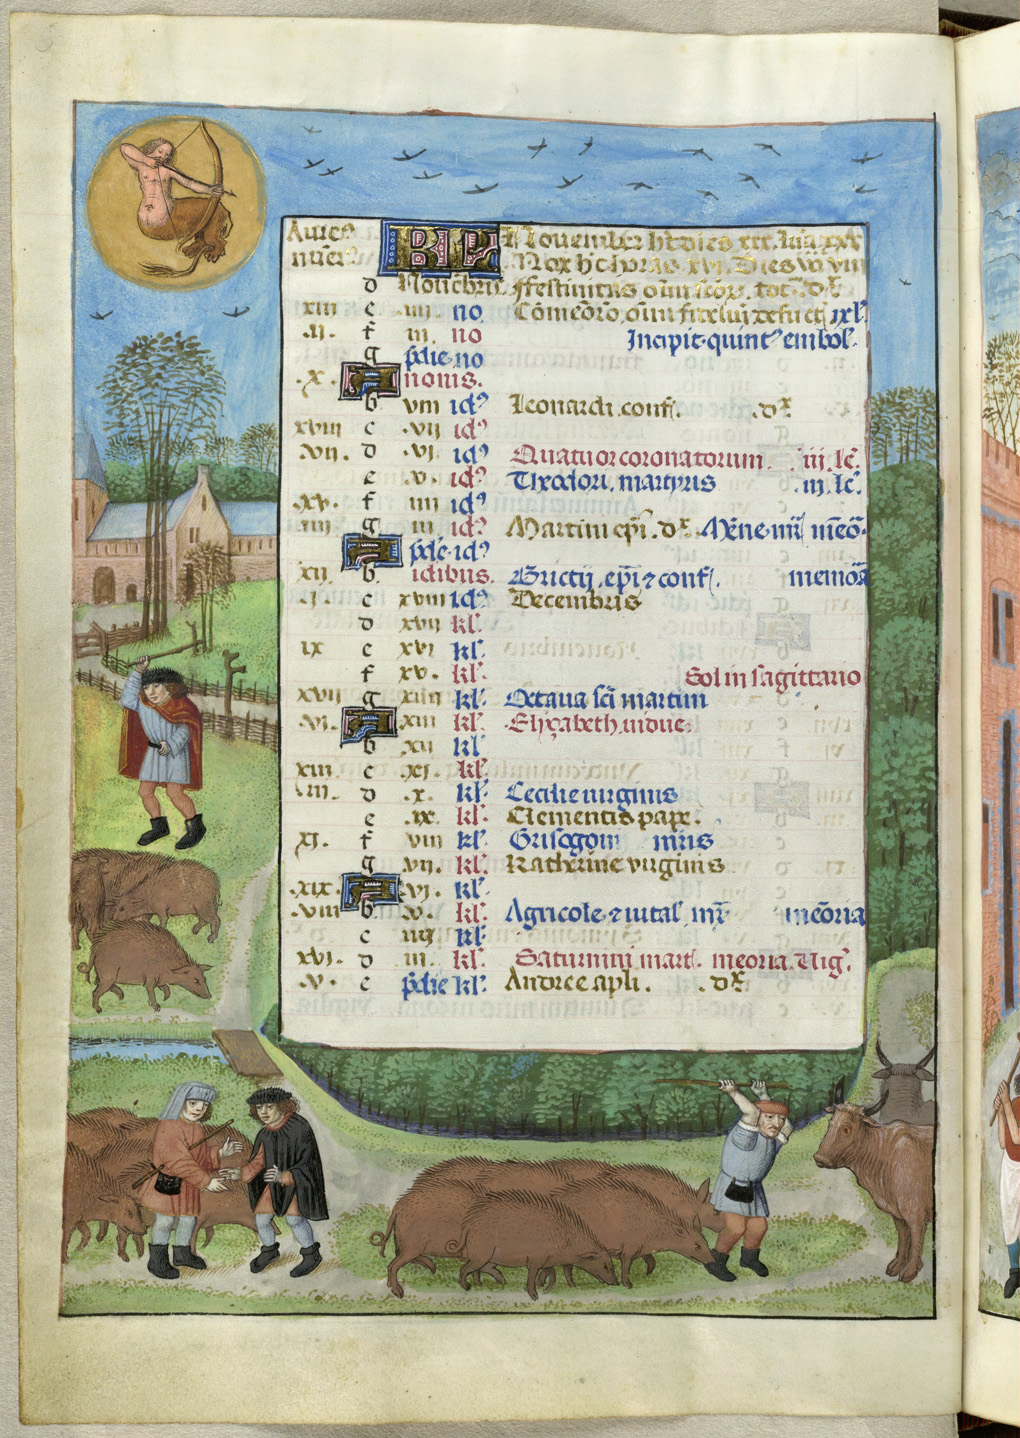 Aure9 KL November ht dies xxx. luna xxx
nuer9 Nox ht horas xvi. Dies vo viii
d Novebris Festivitas oim scor. tot. dx
xiii e .iiii no Comeoro. oim fidelium defuctj ixl
.ii. f iii. no Incipit quint9 embol.
g pdie no
.x. A nonis.
b viii id9 Leonardi. conf. .dx
xviii c .vii id9
.vii. d .vi. id9 Quatuor coronatorum. iii. lc.
e .v. id9 Theodori. martyris .iii. lc.
.xv. f iiii id9
.iiii g iii id9 Martini epi. dx. Mene. mr memo.
A pdie id9
.xii b. idibus. Brictij. epi et conf. memoa
.j. c xviii id9 Decembris
d xvii kl.
ix e xvi kl.
f xv. kl. Sol in sagittario
xvii g xiiii kl. Octava sci martini
.vi. A xiii kl. Elizabeth. vidue
b xii kl
xiiii c .xj. kl.
.iii. d .x. kl. Cecilie virginis
e .ix. kl. Clementis pape.
.xj. f viii kl. Grisogoni mris
g vii. kl. Katherine virginis
.xix. A vj. kl.
.viii b. .v. kl. Agricole et vital mr memoria
c iiij kl.
xvi. d iii. kl. Saturnini mart. meoria. Vig.
.v. e pdie kl. Andree apli. .dx